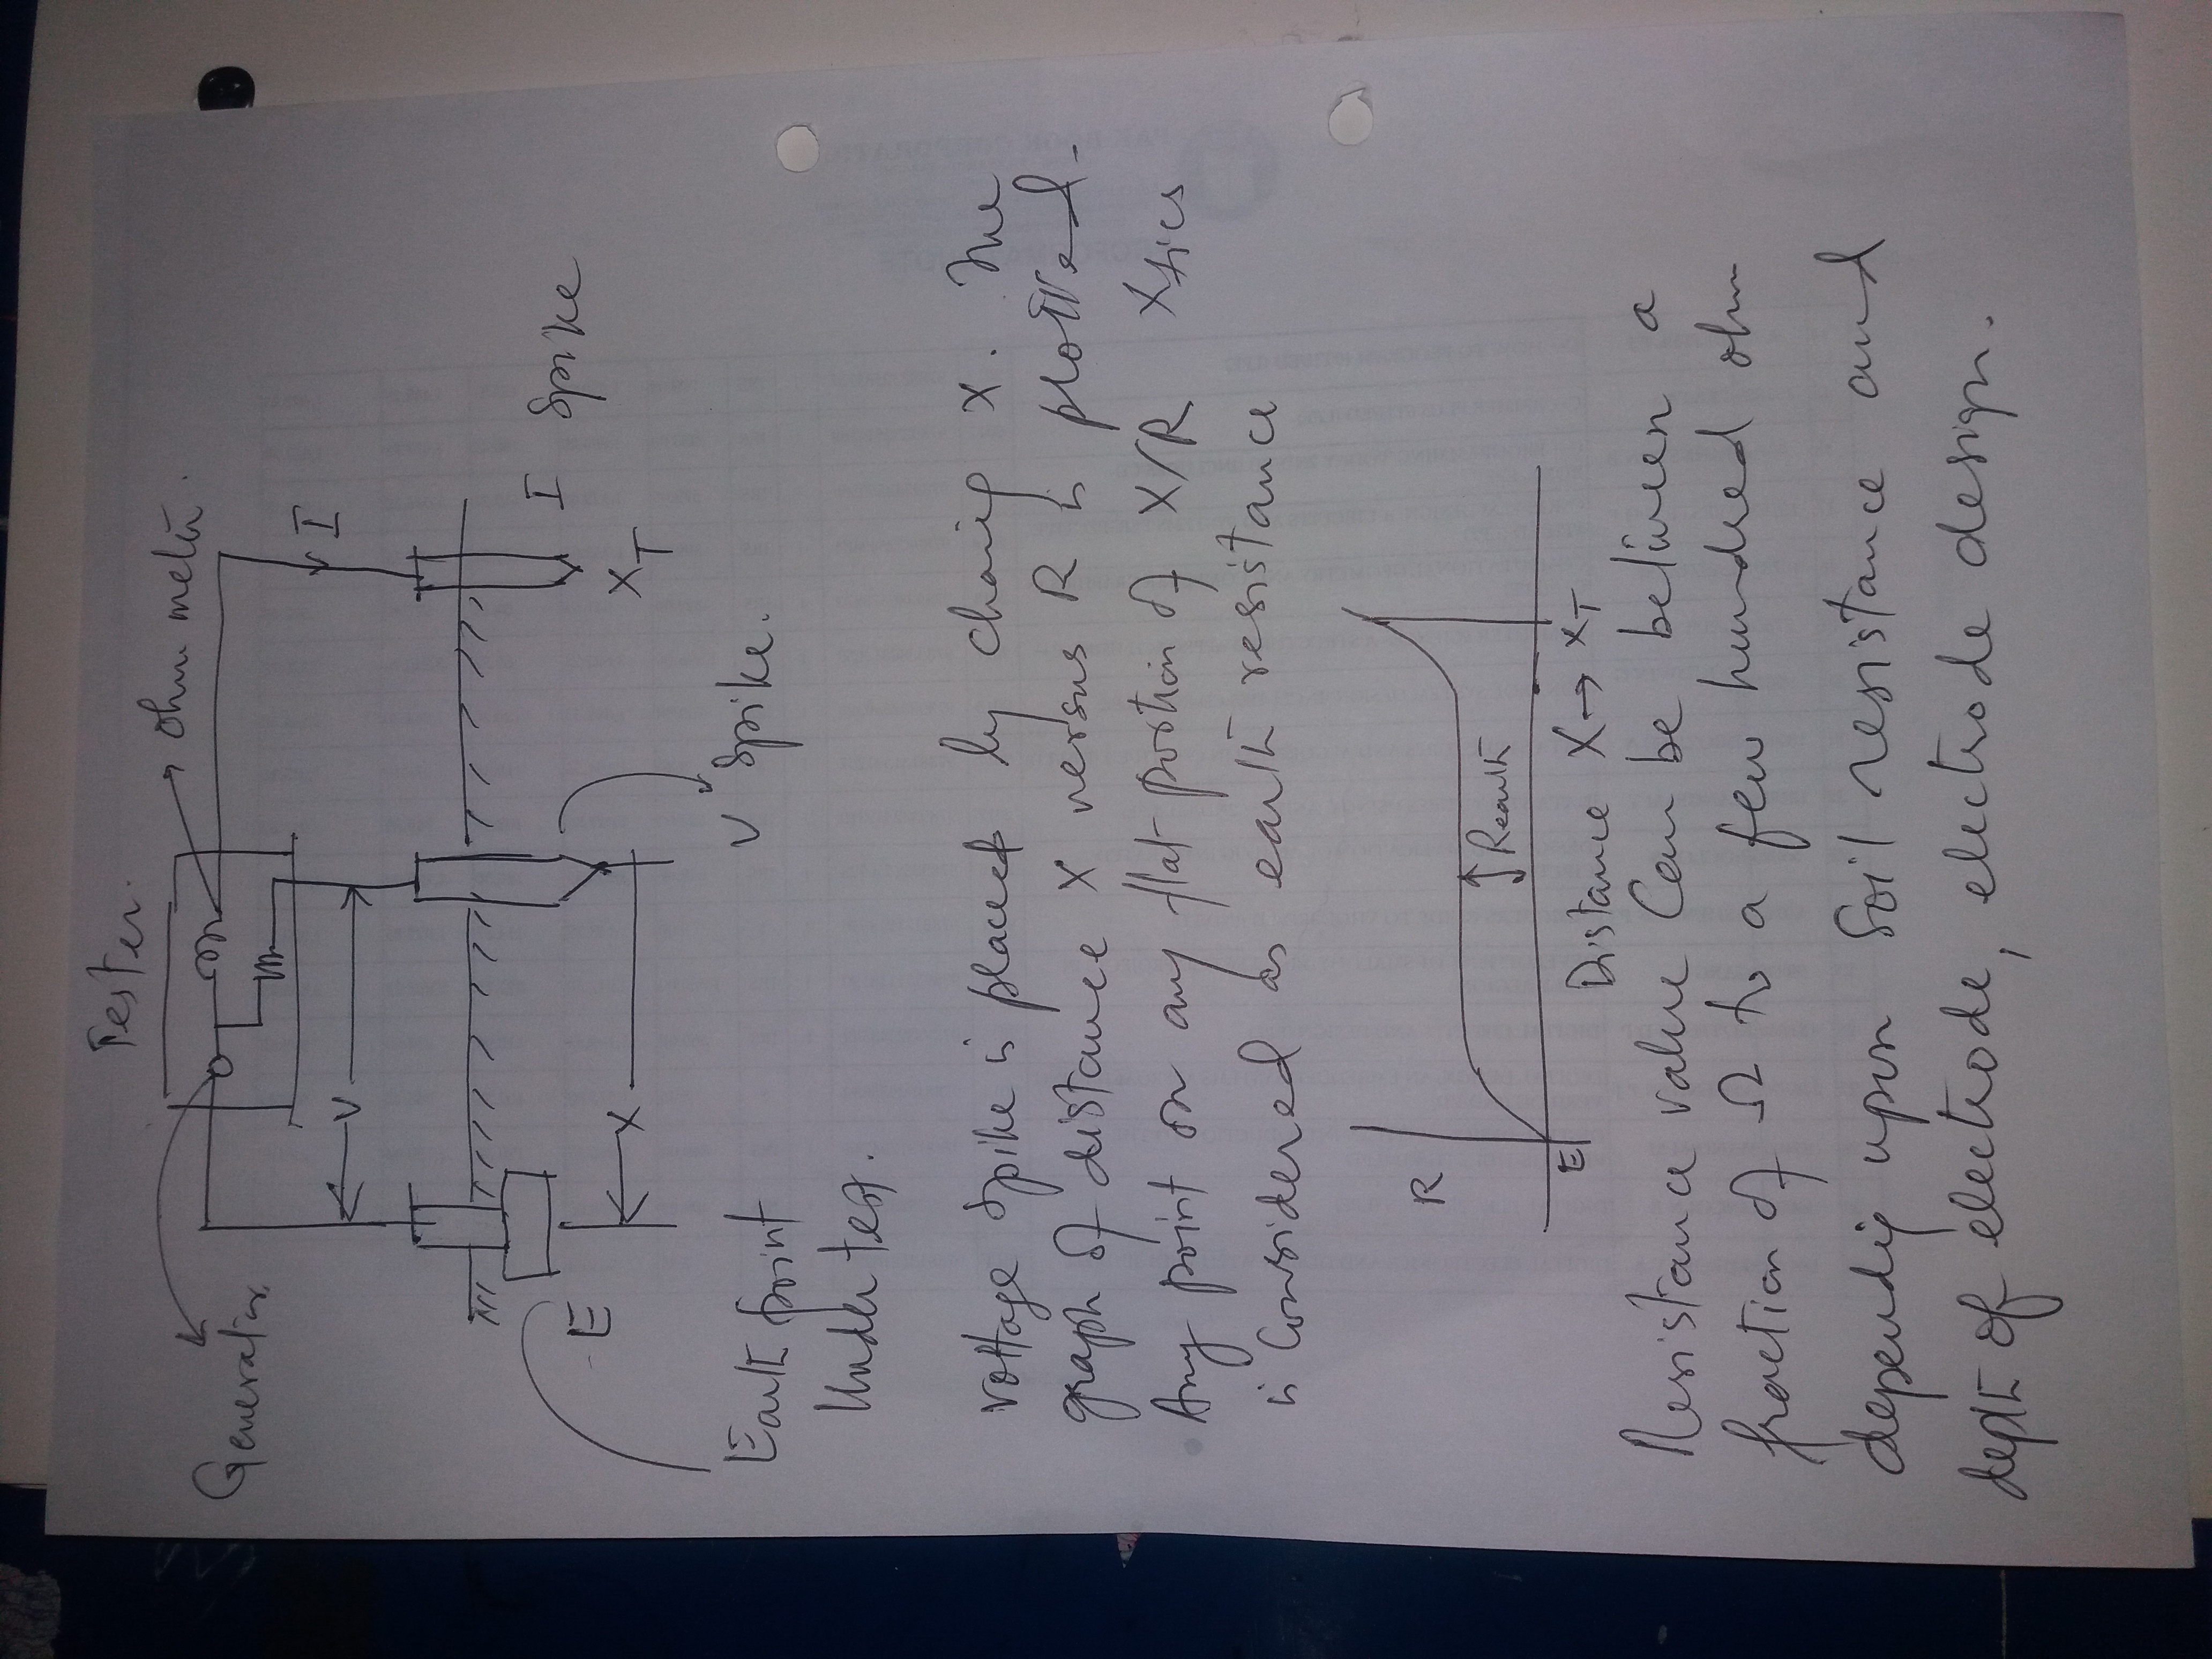 Tester.
Ohm meter.
Generator.
I
V
E
X
I Spike
XT
V Spike.
Earth point
Under test.
voltage spike is placed by chaing X. The
graph of distance X versus R is plotted.
Any point on any flat portion of X/R Xtics
is Considered as earth resistance
R
Rearth
E
Distance X → XT
Resistance value Can be between a
fraction of Ω to a few hundred ohm
dependig upon Soil resistance and
depth of electrode, electrode design.